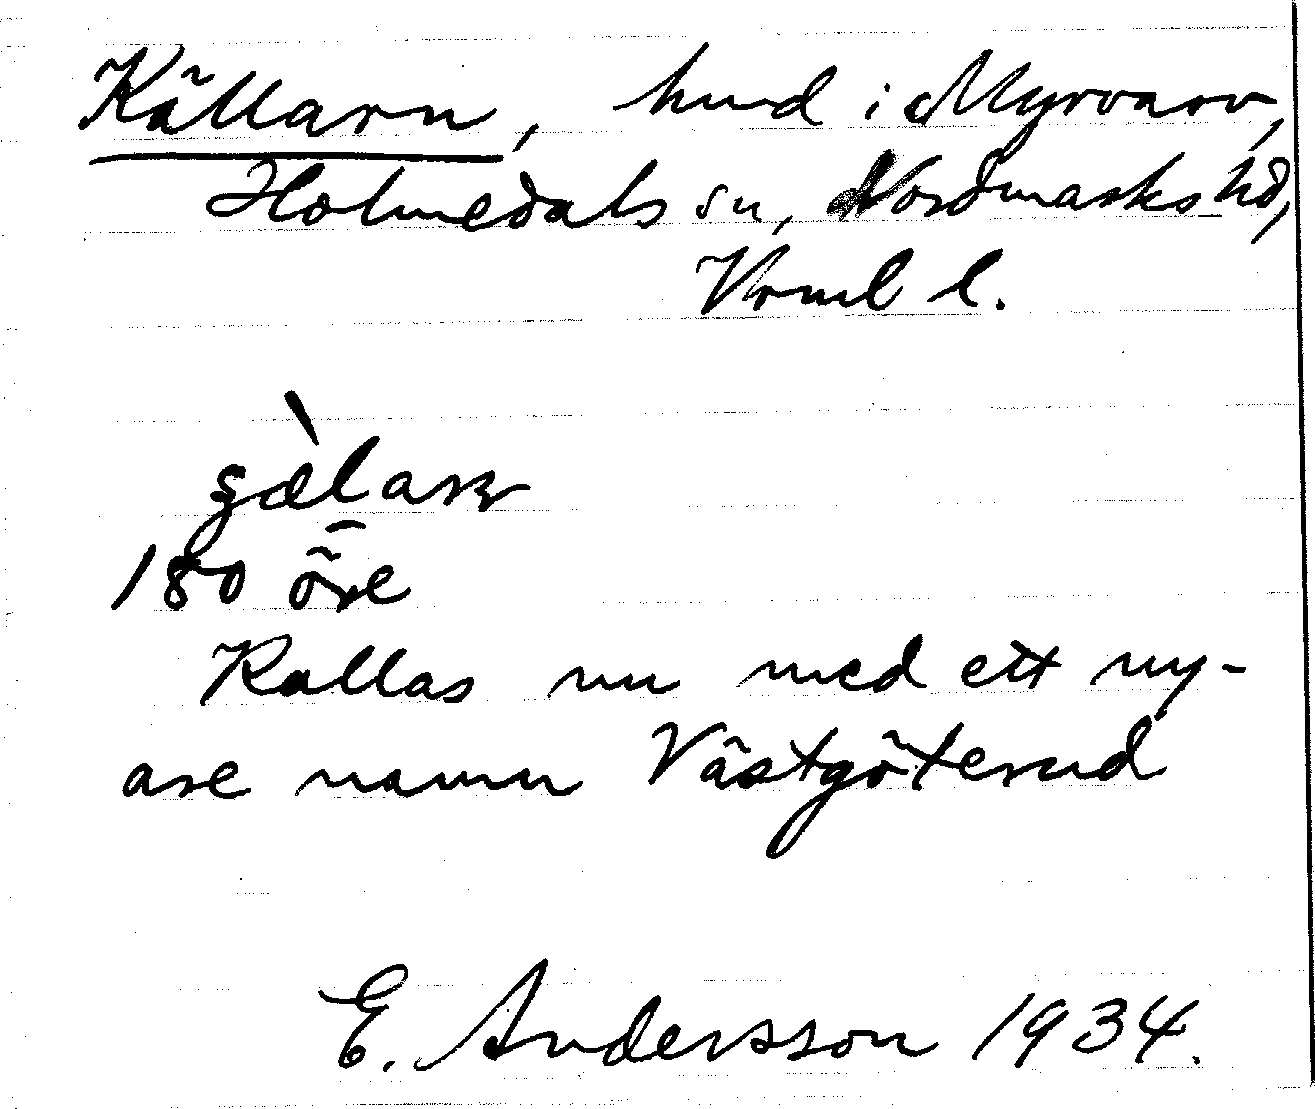 Källarn, hmd i Myrvarv,
Holmedals sn, Nordmarks hd,
Vrml l.
180 öre
Kallas nu med ett ny-
are namn Västgöterud
E. Andersson 1934.